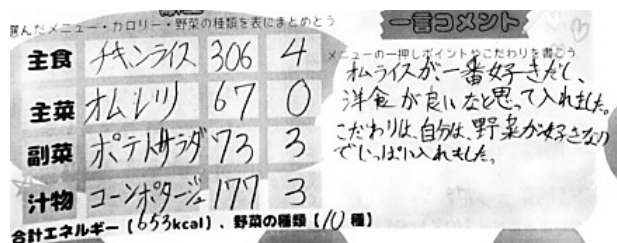 選んだメニュー・カロリー・野菜の種類を表にまとめよう
主食 チキンライス 306 4
主菜 オムレツ 67 0
副菜 ポテトサラダ 73 3
汁物 コーンポタージュ 177 3
合計エネルギー(653kcal)、野菜の種類(10種)
一言コメント
メニューの一押しポイントやこだわりを書こう
オムライスが、一番好きだし、
洋食が良いなと思って入れました。
こだわりは、自分は、野菜が好きなの
でいっぱい入れました。